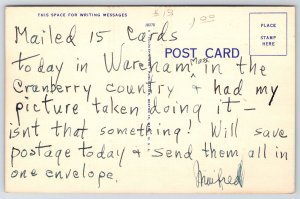 THIS SPACE FOR WRITING MESSAGES
5/9
1.00
POST CARD
PLACE
STAMP
HERE
Mailed 15 Cards
today in Wareham Mass in the
Cranberry country & had my
picture taken doing it -
isnt that something! Will save
postage today & send them all in
one envelope.